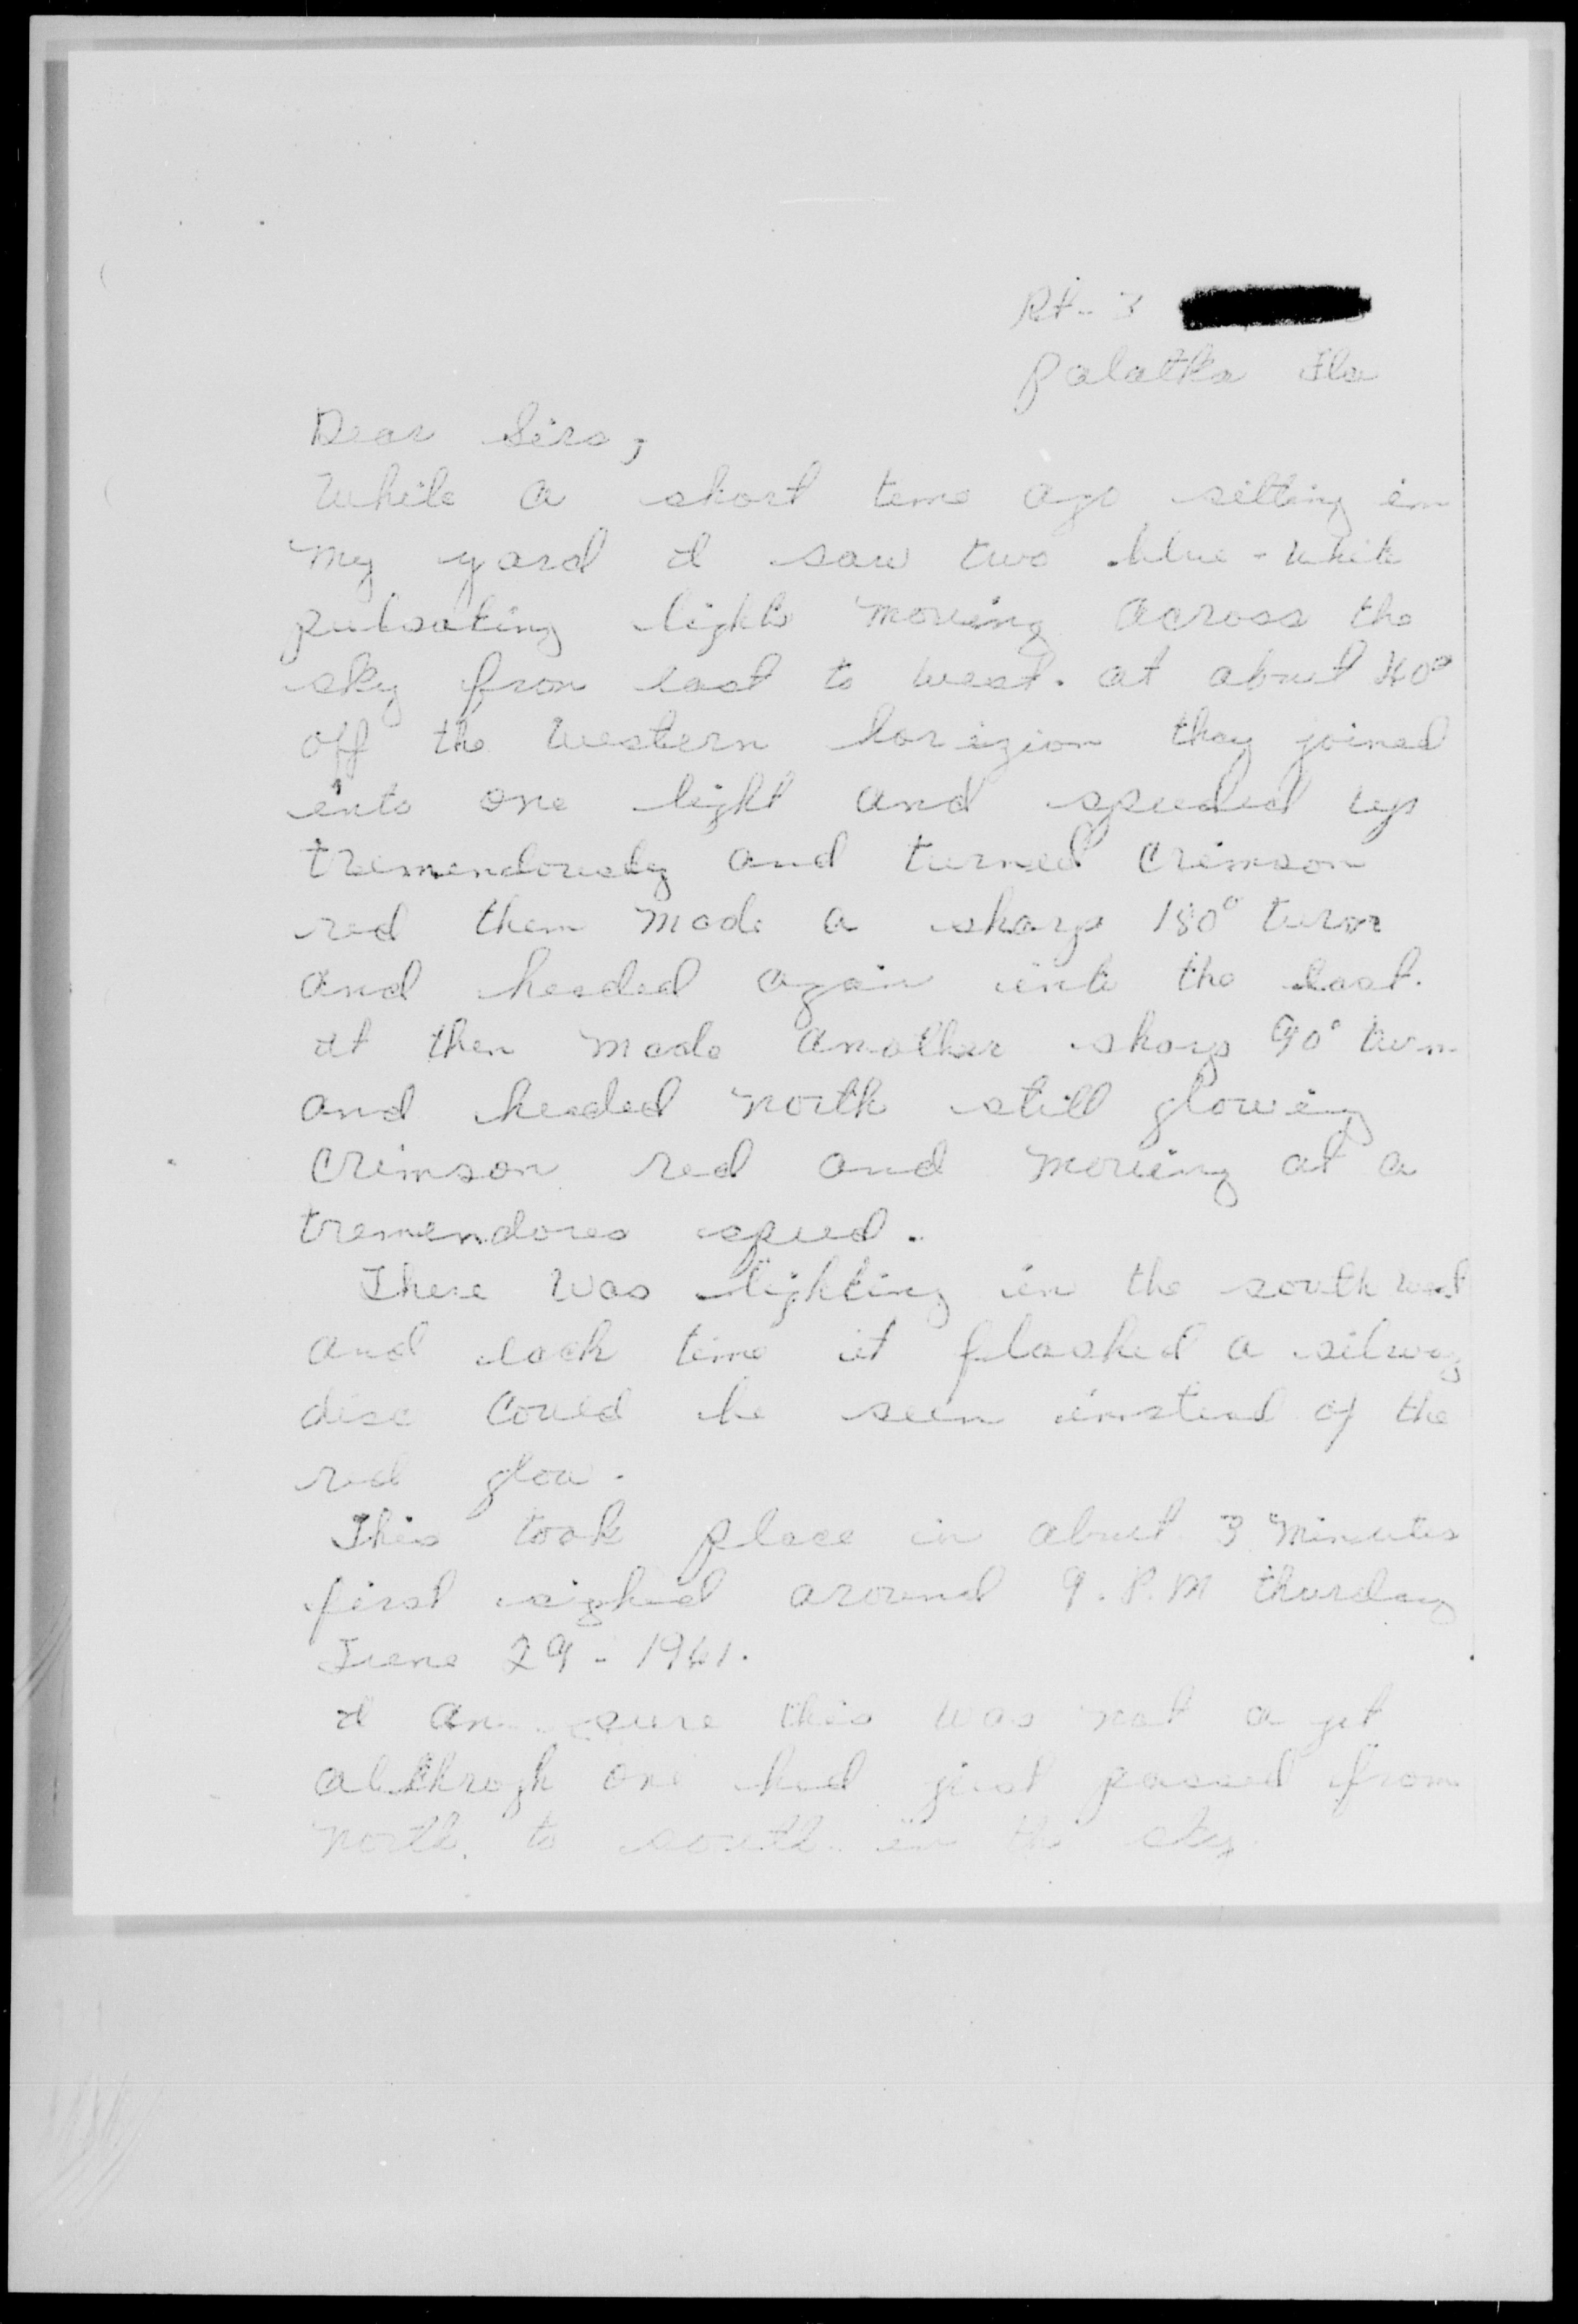 Rt. 3
Palatka Fla
Dear Sirs,
While a short time ago sitting in
my yard I saw two blue-white
pulsating lights moving across the
sky from east to west. at about 40°
off the western horizion they joined
into one light and speeded up
tremendously and turned crimson
red then made a sharp 180° turn
and headed again into the east.
It then made another sharp 90° turn
and headed north still glowing
crimson red and moving at a
tremendores speed.
There was lighting in the south west
and each time it flashed a silvery
disc could be seen instead of the
red glow.
This took place in about 3 minutes
first sighted around 9. P.M thursday
June 29 - 1961.
I am sure this was not a jet
although one had just passed from
north to south in the sky